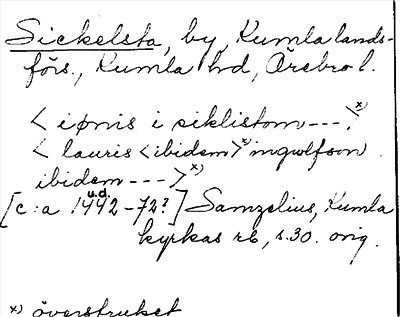 Sickelsta, by, Kumla lands-
förs., Kumla hd, Örebro l.
< ipnis i siklistom --- >x)
< lauris <ibidem>x) ingwlfson
ibidem --- >x)
u.d.
[c:a 1442-72?] Samzelius, Kumla
kyrkas rb, s.30. orig.
x) överstruket